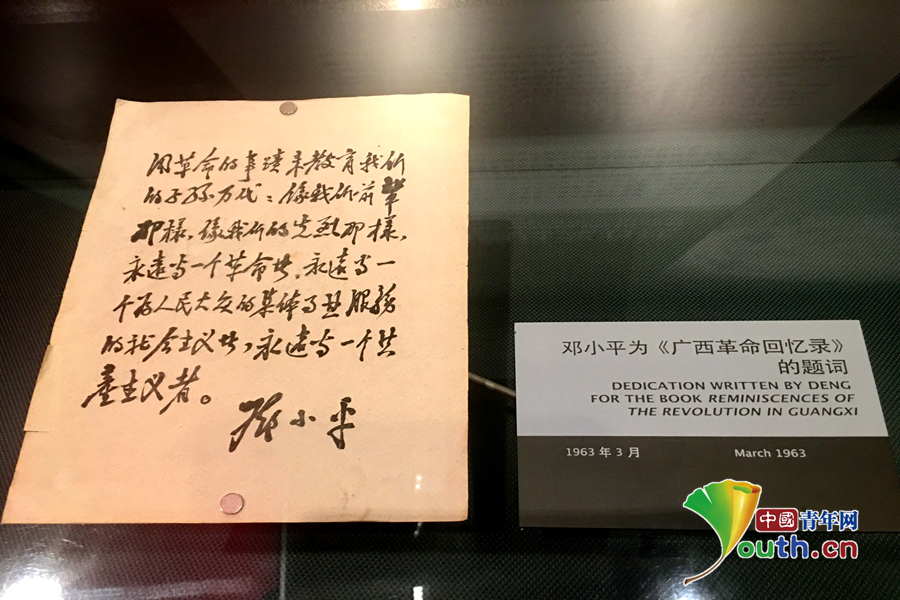 用革命的事蹟来教育我们
的子孙万代：像我们前辈
那樣，像我们的先烈那樣，
永遠当一个革命者，永遠当一
个为人民大众的集体事业服務
的社会主义者，永遠当一个共
產主义者。
邓小平
邓小平为《广西革命回忆录》
的题词
DEDICATION WRITTEN BY DENG
FOR THE BOOK REMINISCENCES OF
THE REVOLUTION IN GUANGXI
1963 年 3 月
March 1963
中國青年网
Youth.cn